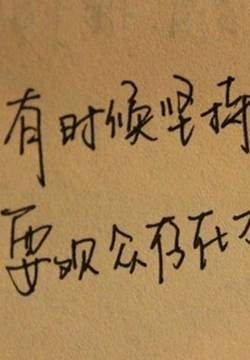 有时候坚持
要观众存在